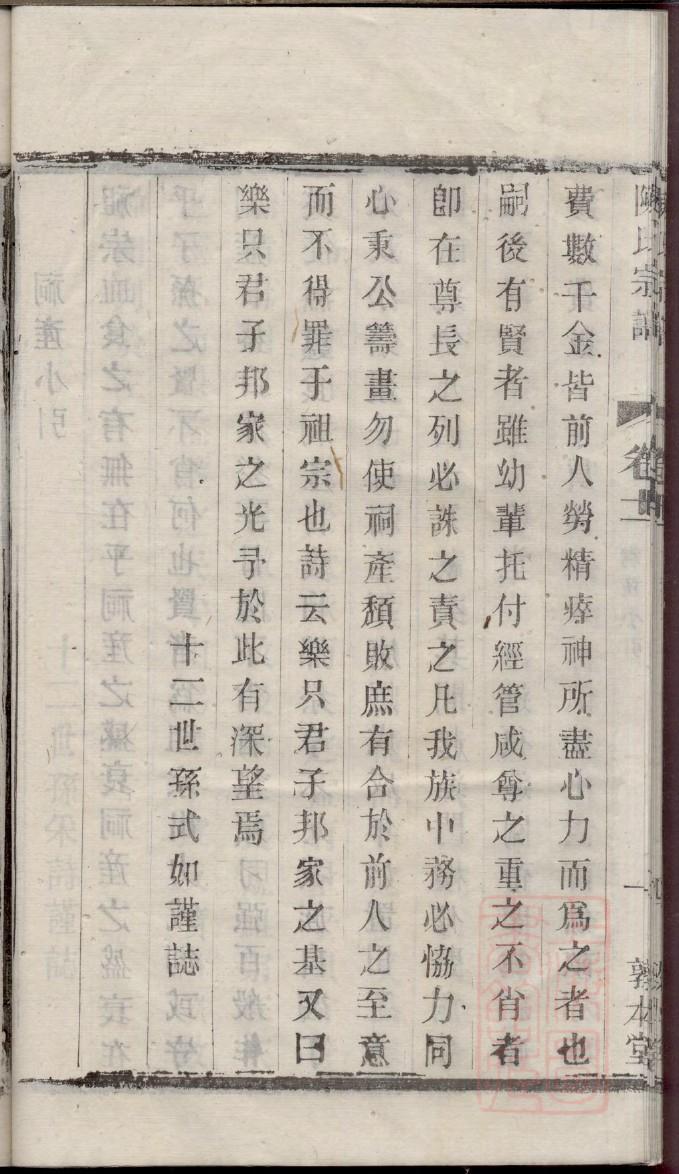 陳氏宗譜 卷十二 一 敦本堂
費數千金皆前人勞精瘁神所盡心力而爲之者也
嗣後有賢者雖幼輩托付經管咸尊之重之不肖者
卽在尊長之列必誅之責之凡我族中務必恊力同
心秉公籌畫勿使祠產頽敗庶有合於前人之至意
而不得罪于祖宗也詩云樂只君子邦家之基又曰
樂只君子邦家之光予於此有深望焉
十二世孫式如謹誌